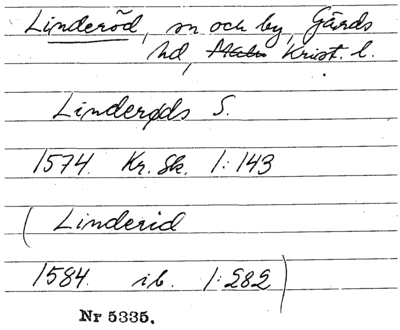 Linderöd, sn och by, Gärds
hd, Malm Krist. l.
Linderøds S.
1574. Kr. Sk. 1:143
(Linderid
1584. ib. 1:282)
Nr 5335.